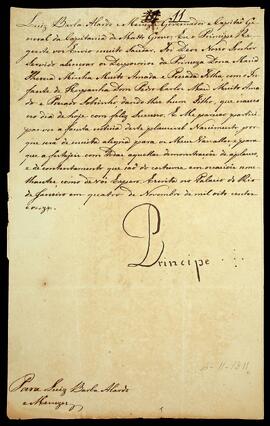 11
Luiz Barba Alardo e Menezes Governador e Capitão Ge
neral da Capitania de Matto Grosso. Eu o Principe Re
gente vos Envio muito Saudar. Deos Nosso Senhor
Servido abençoar os Desposorios da Princeza Dona Maria
Thereza Minha Muito Amada e Prezada Filha, com o In
fante de Hespanha Dom Pedro Carlos Meu Muito Ama
do e Prezado Sobrinho dando lhes hum Filho, que nasceo
no dia de hoje com feliz Successo. E Me pareceo partici
par vos a fausta noticia deste plausivel Nascimento por
que será de muita alegria para os Meus Vassallos e para
que a festejeis com todas aquellas demonstrações de aplauso,
e de contentamento que são do costume em occasiões seme
lhantes, como de vós Espero. Escrita no Palacio do Rio
de Janeiro em quatro de Novembro de mil oito centos
e onze.
Principe
4-11-1811
Para Luiz Barba Alardo
e Menezes